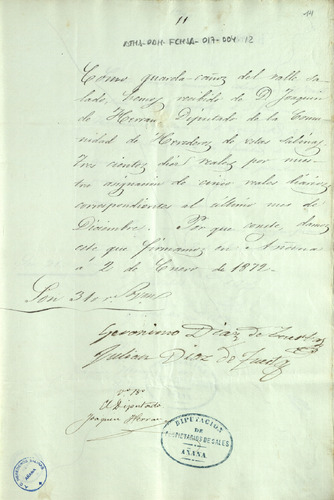 11
14
ATHA-DAH-FCHSA-017-004-12
Como guarda-cañas del valle sa-
lado, hemos recibido de D. Joaquin
de Herran Diputado de la Comu-
nidad de Herederos de estas salinas
tres cientos diez reales por nues-
tra asignacion de cinco reales diarios
correspondientes al último mes de
Diciembre. Por que conste, damos
este que firmamos en Añana
á 2 de Enero de 1872.
Son 310 r.
Geronimo Diaz de Tuesta
Julian Diaz de Tuesta
Vº Bº
El Diputado
Joaquin Herran
DIPUTACION
DE
PROPIETARIOS DE SALES
AÑANA